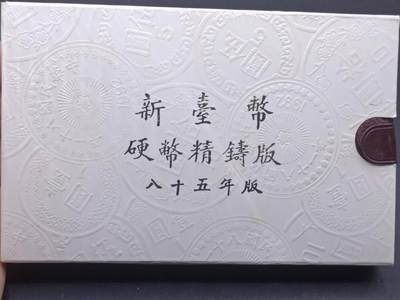 新臺幣
硬幣精鑄版
八十五年版